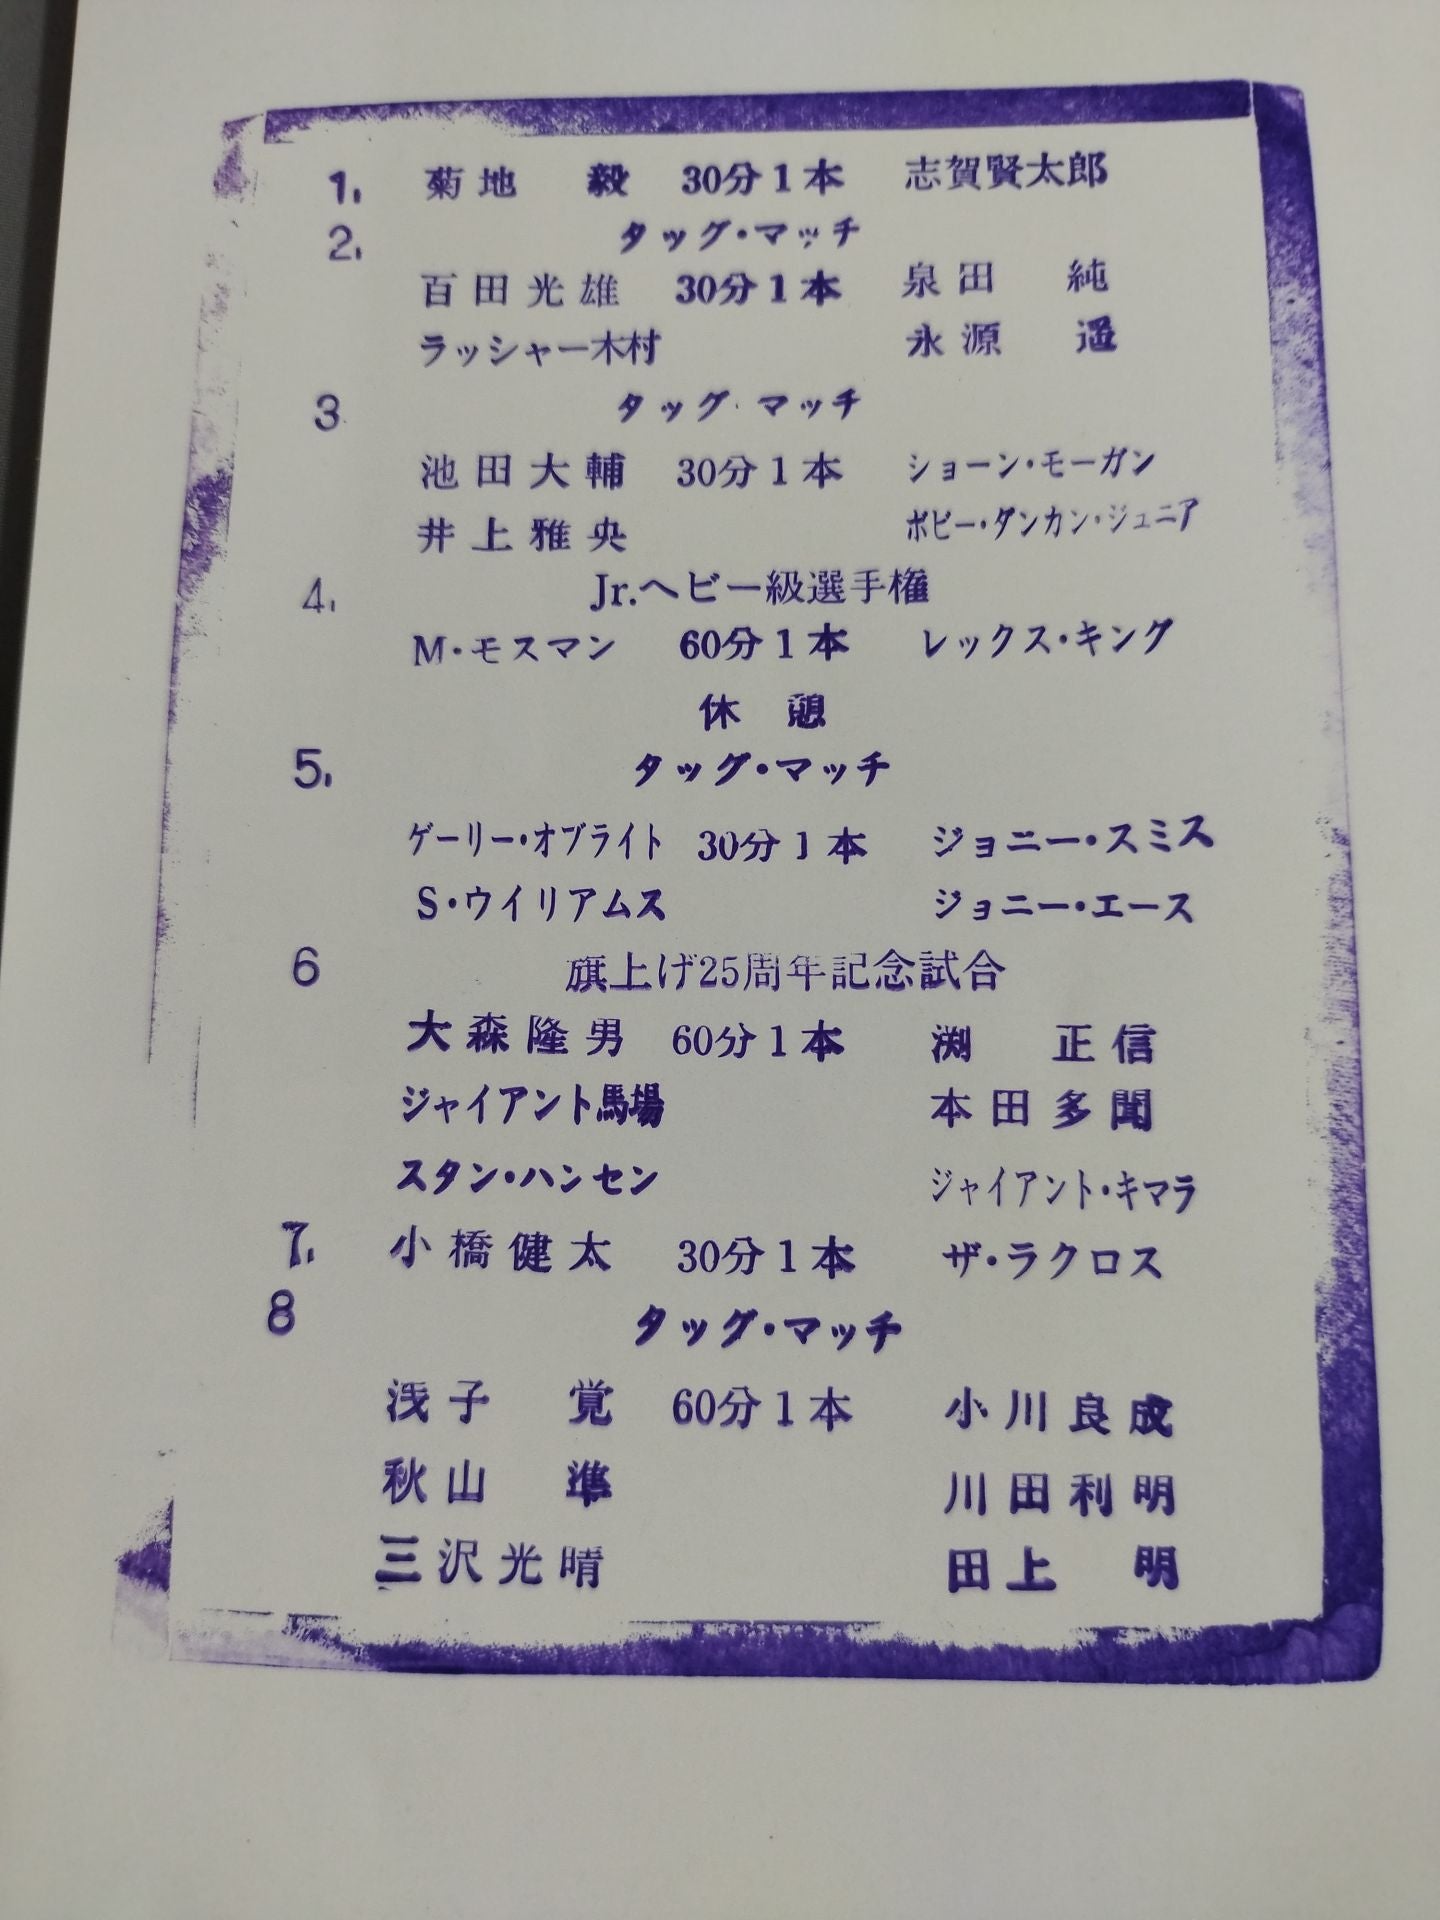 1. 菊地 毅 30分1本 志賀賢太郎
2. タッグ・マッチ
百田光雄 30分1本 泉田 純
ラッシャー木村 永源 遥
3 タッグ・マッチ
池田大輔 30分1本 ショーン・モーガン
井上雅央 ボビー・ダンカン・ジュニア
4. Jr.ヘビー級選手権
M・モスマン 60分1本 レックス・キング
休憩
5. タッグ・マッチ
ゲーリー・オブライト 30分1本 ジョニー・スミス
S・ウイリアムス ジョニー・エース
6 旗上げ25周年記念試合
大森隆男 60分1本 渕 正信
ジャイアント馬場 本田多聞
スタン・ハンセン ジャイアント・キマラ
7. 小橋健太 30分1本 ザ・ラクロス
8 タッグ・マッチ
浅子 覚 60分1本 小川良成
秋山 準 川田利明
三沢光晴 田上 明